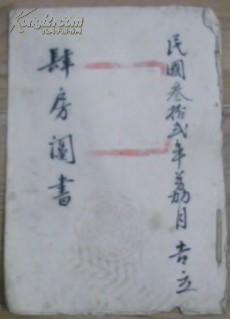 民國叁拾弍年荔月吉立
肆房阄書
Kongfz.com